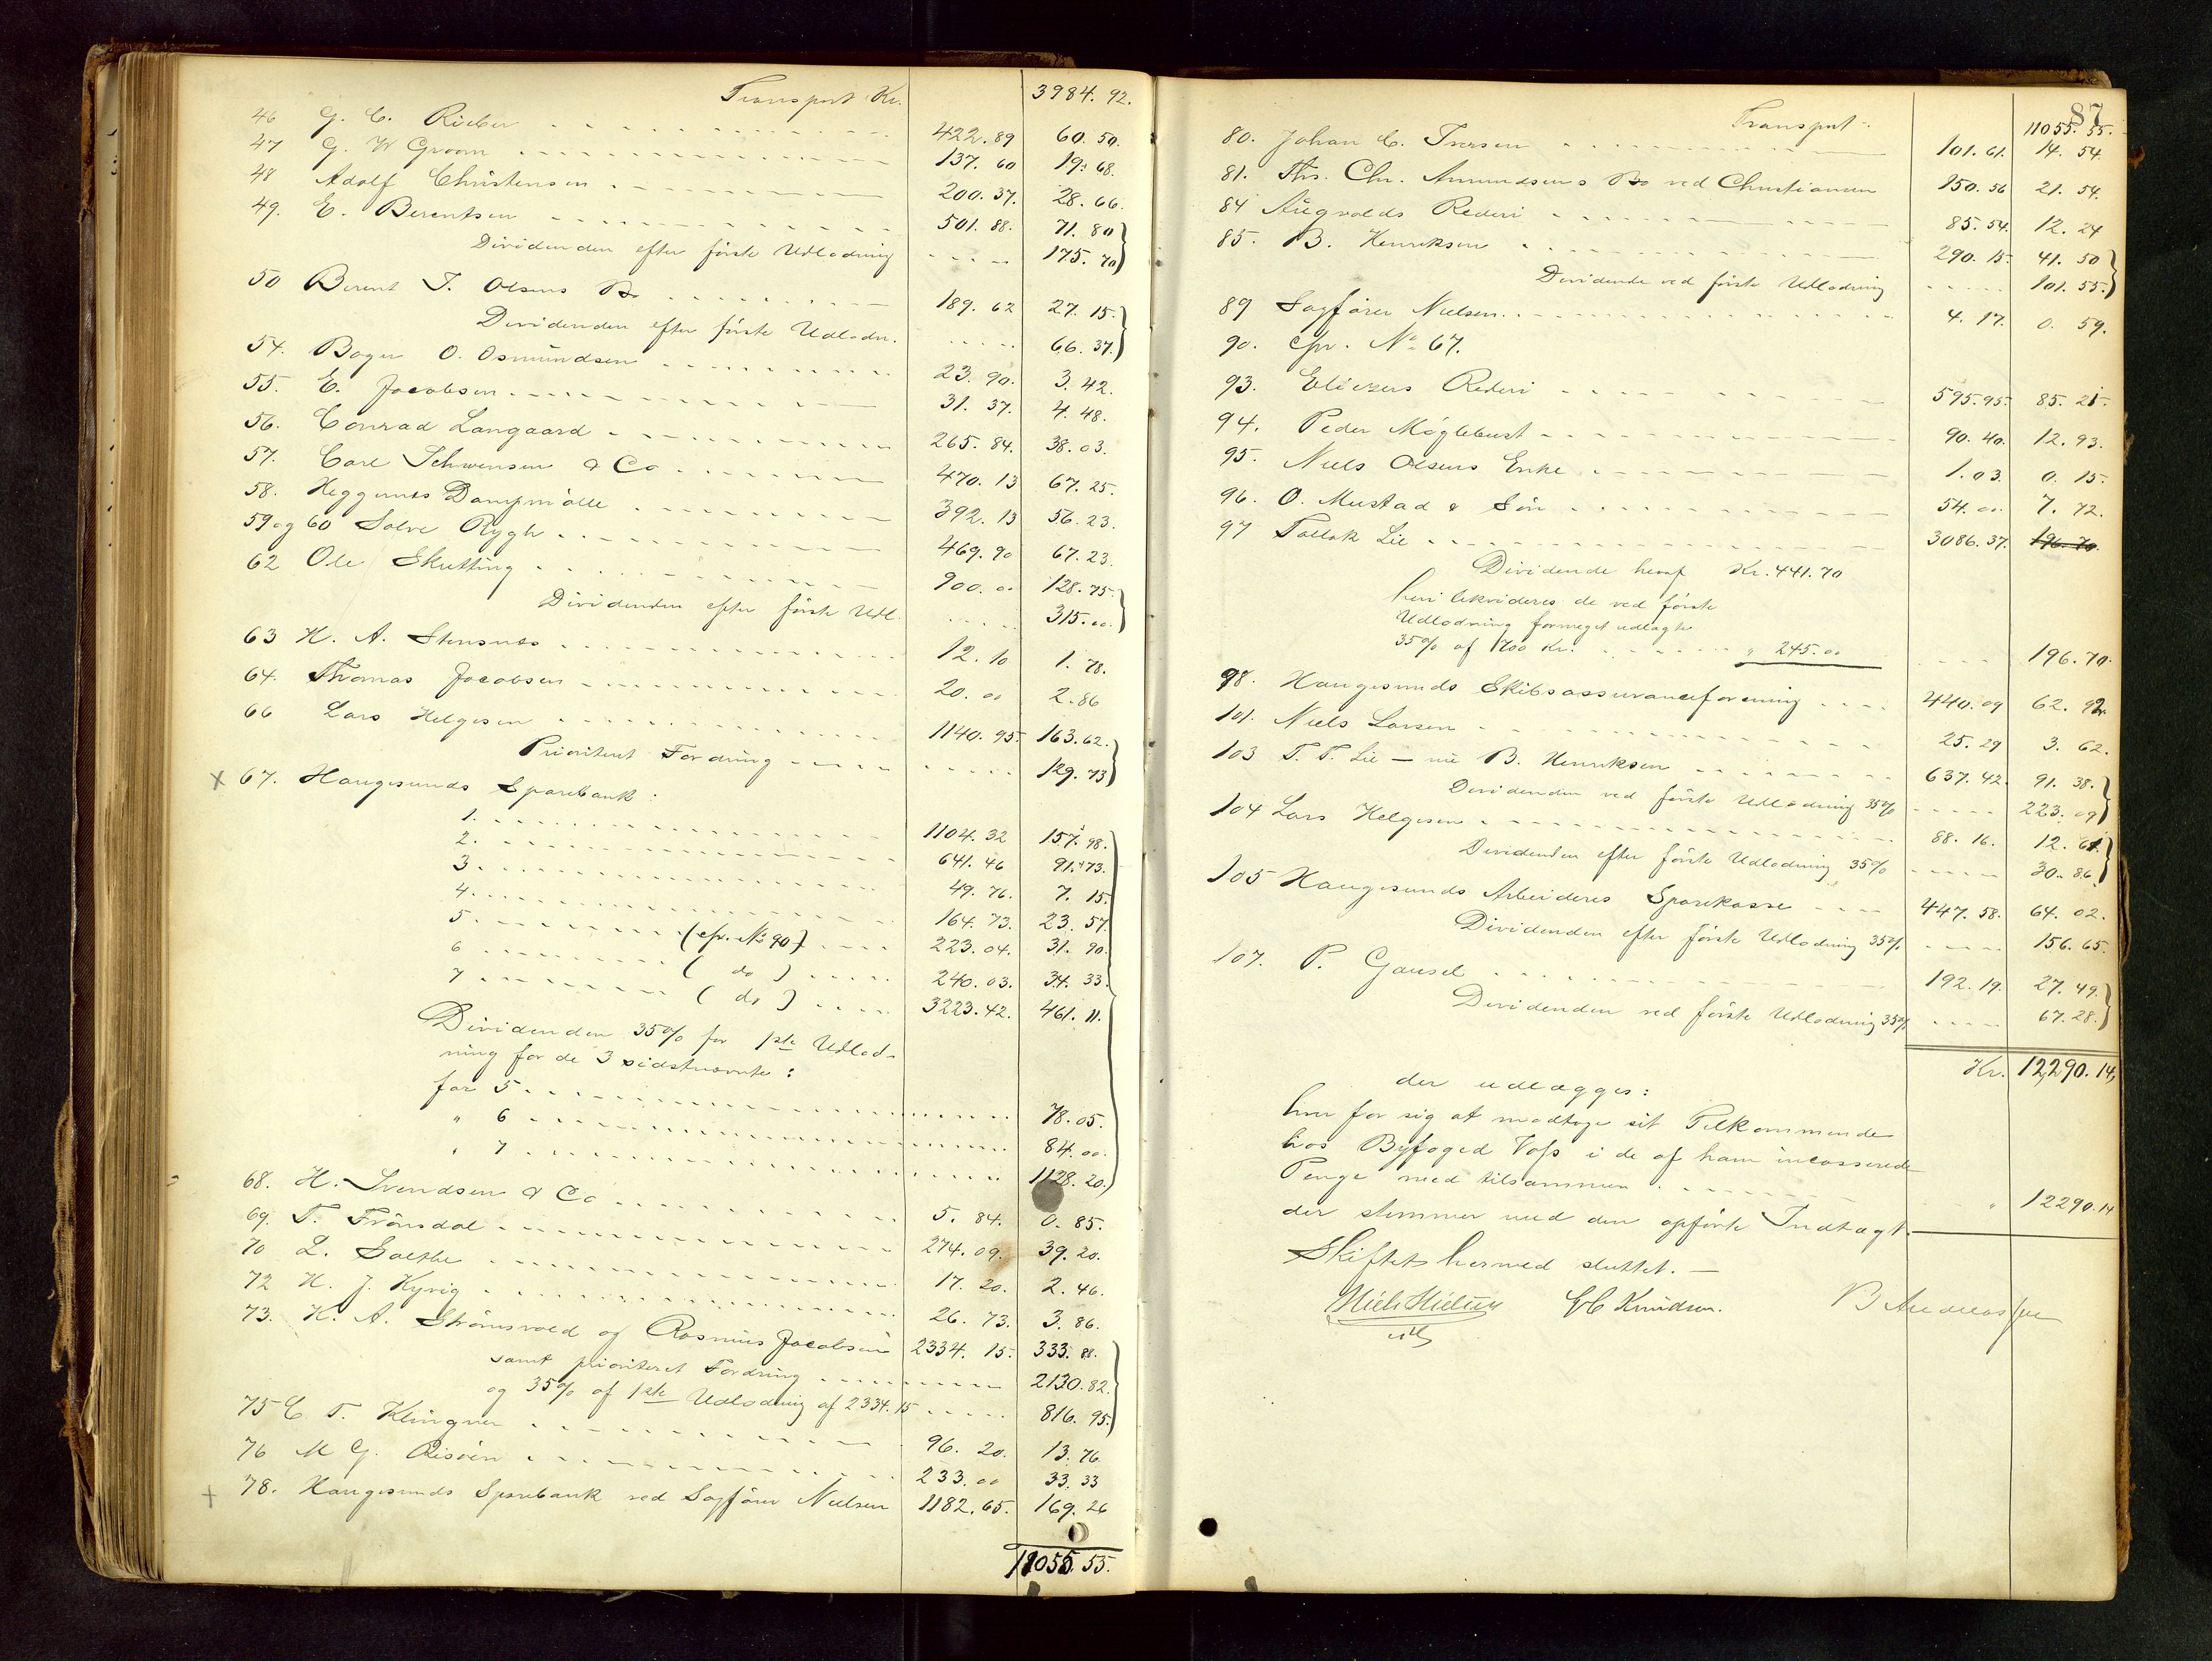 Transport Kr. 3984. 92.
46 G. C. Rieber 422. 89 60. 50.
47 G. W Groom 137. 60 19. 68.
48 Adolf Christensen 200. 37. 28. 66.
49. E. Berentsen 501. 88. 71. 80
Dividenden efter første Udlodning 175. 70
50 Berent T. Olsens Bo 189. 62 27. 15.
Dividenden efter første Udlodn. 66. 37.
54. Bager O. Osmundsen 23. 90. 3. 42.
55. E. Jacobsen 31. 37. 4. 48.
56. Conrad Langaard 265. 84. 38. 03.
57. Carl Schwensen & Co 470. 13 67. 25.
58. Heggernes Dampmølle 392. 13 56. 23.
59 og 60 Solve Rygh 469. 90 67. 23.
62 Ole Skutting 900. 00 128. 75.
Dividenden efter første Udl. 315. 00.
63 H. A. Stensnes 12. 10 1. 78.
64. Thomas Jacobsen 20. 00 2. 86
66 Lars Helgesen 1140. 95. 163. 62.
Prioriteret Fordring 129. 73
x 67. Haugesunds Sparebank:
1. 1104. 32 157. 98.
2. 641. 46 91. 73.
3. 49. 76. 7. 15.
4. 164. 73. 23. 57.
5. (cfr. No 90) 223. 04. 31. 90.
6 ( do ) 240. 03. 34. 33.
7 ( do ) 3223. 42. 461. 11.
Dividenden 35% for 1ste Udlod-
ning for de 3 sidstnævnte:
for 5 78. 05.
" 6 84. 00.
" 7 1128. 20.
68. H. Svendsen & Co 5. 84. 0. 85.
69. T. Frönsdal 274. 09. 39. 20.
70 L. Salthe 17. 20. 2. 46.
72 H. J. Kyvig 26. 73. 3. 86.
73. K. A. Strømsvold og Rasmus Jacobsen 2334. 15. 333. 88.
samt prioriteret Fordring 2130. 82.
og 35% af 1ste Udlodning af 2334. 15 816. 95.
75 C T. Klingner 96. 20. 13. 76
76 M G. Risøen 233. 00 33. 33
+ 78. Haugesunds Sparebank ved Sagfører Nielsen 1182. 65. 169. 26
11055. 55.
87
Transport 11055. 55.
80. Johan C. Iversen 101. 61. 14. 54.
81. Ths. Chr. Amundsens Bo ved Christiansen 150. 56 21. 54.
84 Augvalds Rederi 85. 54. 12. 24
85. B. Henriksen 290. 15. 41. 50
Dividende ved første Udlodning 101. 55.
89 Sagfører Nielsen 4. 17. 0. 59.
90. cfr. No 67.
93. Eliezers Rederi 595. 95. 85. 25.
94. Peder Møglebust 90. 40. 12. 93.
95. Niels Olsens Enke 1. 03. 0. 15.
96. O. Mustad & Søn 54. 00 7. 72.
97 Tollak Lie 3086. 37. 196. 70.
Dividende heraf Kr. 441. 70
heri likvideres de ved første
Udlodning formeget udlagte
35% af 700 Kr. " 245. 00 196. 70.
98. Haugesunds Skibsassuranceforening 440. 09 62. 92.
101. Niels Larsen 25. 29 3. 62.
103 T. T. Lie — nu B. Henriksen 637. 42. 91. 38.
Dividenden ved første Udlodning 35% 223. 09
104 Lars Helgesen 88. 16. 12. 61.
Dividenden efter første Udlodning 35% 30. 86
105 Haugesunds Arbeideres Sparekasse 447. 58. 64. 02.
Dividenden efter første Udlodning 35% 156. 65.
107. P. Gausel 192. 19. 27. 49.
Dividenden ved første Udlodning 35% 67. 28.
Kr. 12290. 14,
der udlægges:
hver for sig at modtage sit Tilkommende
hos Byfoged Voss i de af ham incasserede
Penge med tilsammen " 12290. 14
der stemmer med den opførte Indtægt.
Skiftet hermed sluttet. —
Niels Nielsen GC Knudsen. B Andreassen